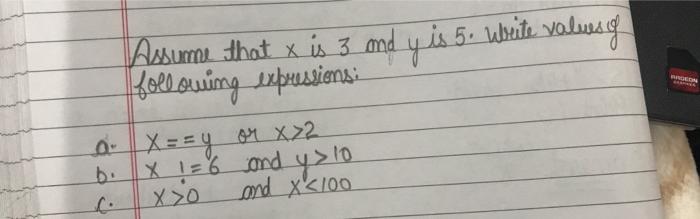 Assume that x is 3 and y is 5. Write values of
following expressions:
a. x == y or x>2
b. x != 6 and y>10
c. x>0 and x<100
RADEON
GRAPHICS